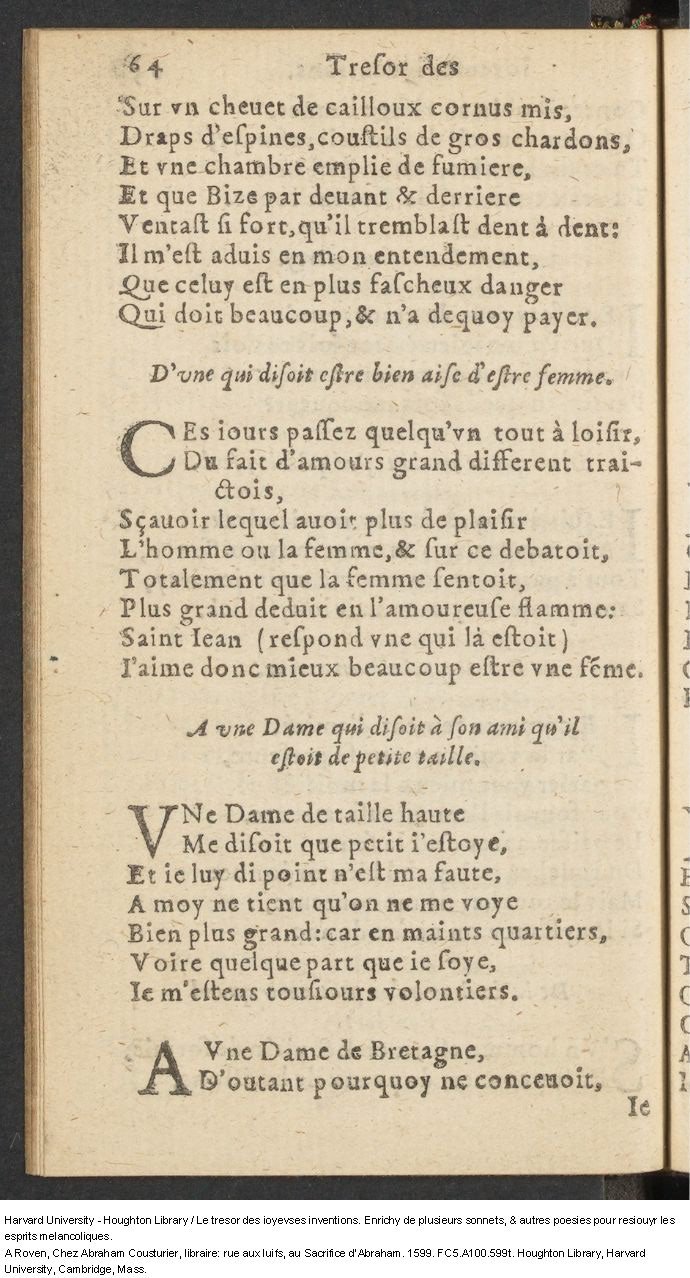 64 Treſor des
Sur vn cheuet de cailloux cornus mis,
Draps d'eſpines, couſtils de gros chardons,
Et vne chambre emplie de fumiere,
Et que Bize par deuant & derriere
Ventaſt ſi fort, qu'il tremblaſt dent à dent:
Il m'eſt aduis en mon entendement,
Que celuy eſt en plus faſcheux danger
Qui doit beaucoup, & n'a dequoy payer.
D'vne qui diſoit eſtre bien aiſe d'eſtre femme.
CEs iours paſſez quelqu'vn tout à loiſir,
Du fait d'amours grand different trai-
ctois,
Sçauoir lequel auoit plus de plaiſir
L'homme ou la femme, & ſur ce debatoit,
Totalement que la femme ſentoit,
Plus grand deduit en l'amoureuſe flamme:
Saint Iean (reſpond vne qui là eſtoit)
I'aime donc mieux beaucoup eſtre vne fẽme.
A vne Dame qui diſoit à ſon ami qu'il
eſtoit de petite taille.
VNe Dame de taille haute
Me diſoit que petit i'eſtoye,
Et ie luy di point n'eſt ma faute,
A moy ne tient qu'on ne me voye
Bien plus grand: car en maints quartiers,
Voire quelque part que ie ſoye,
Ie m'eſtens touſiours volontiers.
A Vne Dame de Bretagne,
D'outant pourquoy ne conceuoit,
Ie
Harvard University - Houghton Library / Le tresor des ioyevses inventions. Enrichy de plusieurs sonnets, & autres poesies pour resiouyr les
esprits melancoliques.
A Roven, Chez Abraham Cousturier, libraire: rue aux Iuifs, au Sacrifice d'Abraham. 1599. FC5.A100.599t. Houghton Library, Harvard
University, Cambridge, Mass.